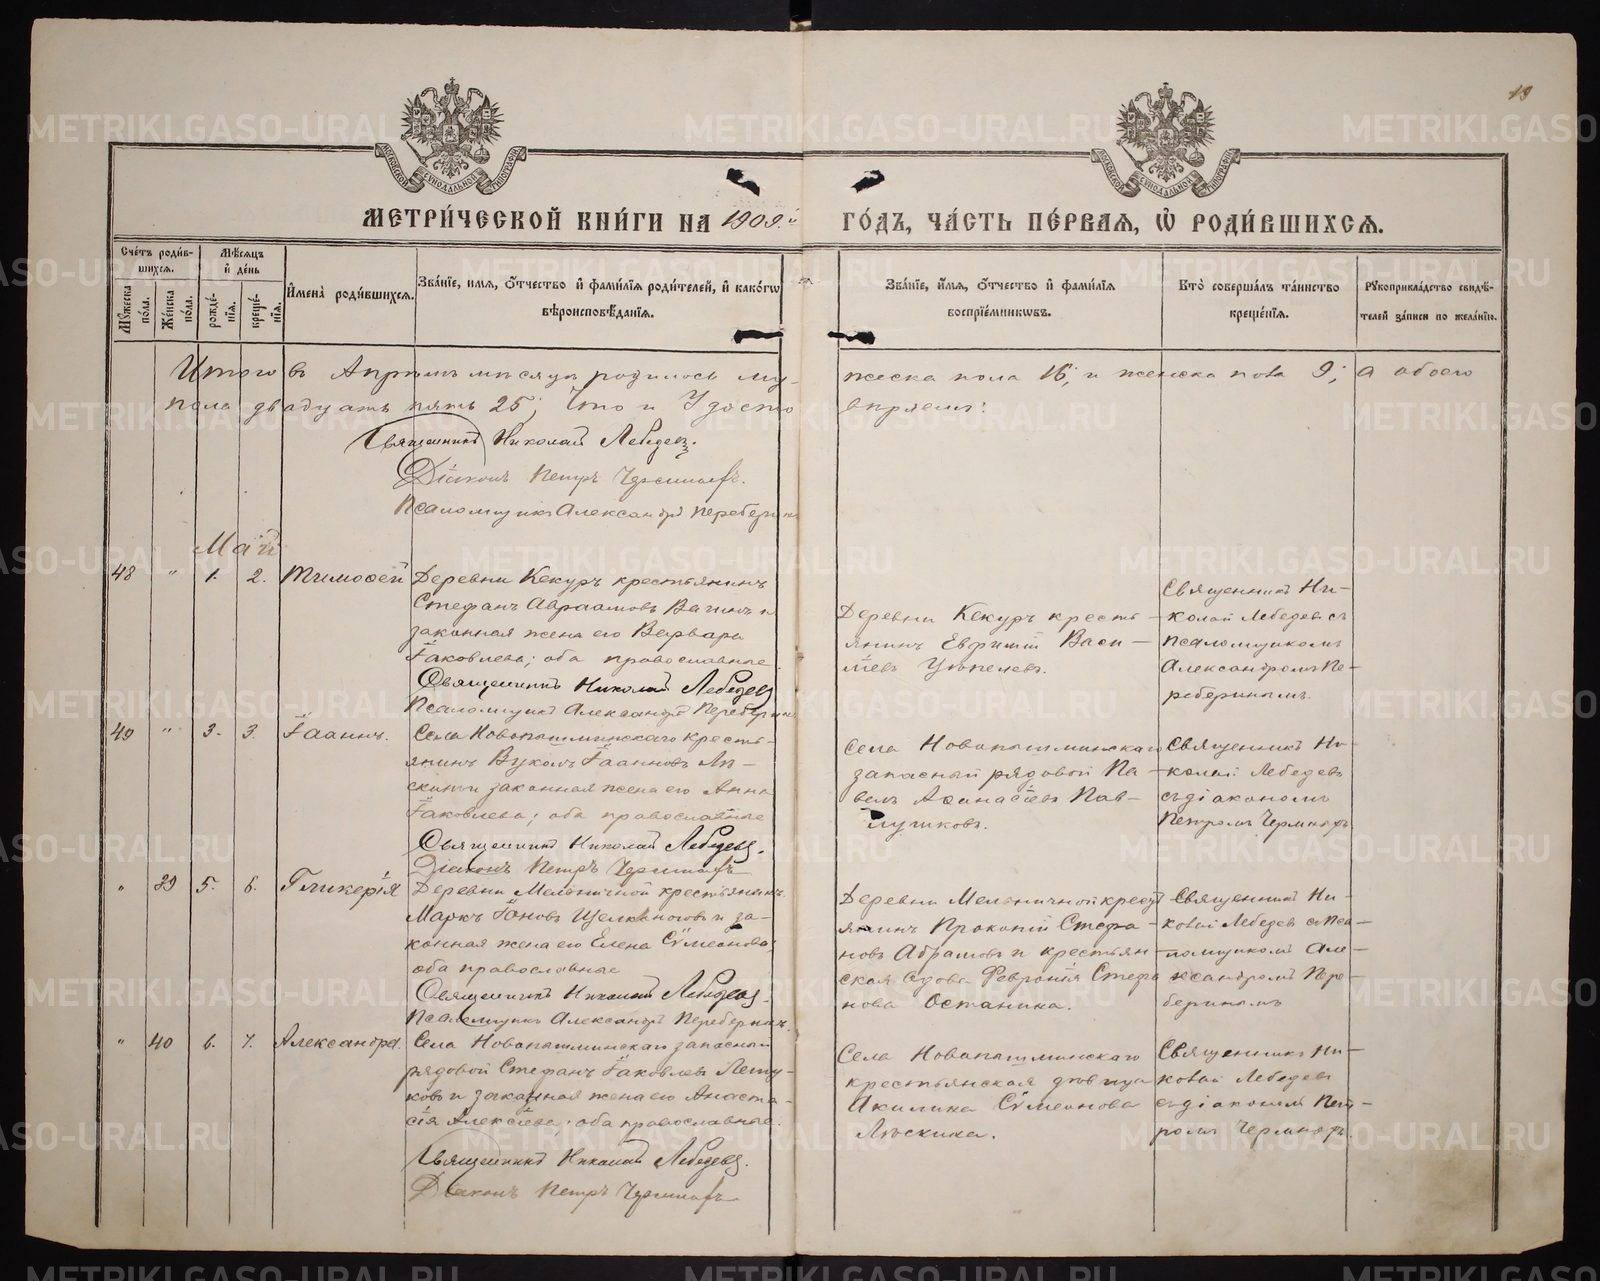 19
МЕТРИ́ЧЕСКОЙ КНИ́ГИ НА 1909.й ГО́ДЪ, ЧА́СТЬ ПЕ́РВАЯ, Ѽ РОДИ́ВШИХСЯ.
Сче́тъ роди́вшихся.
Мѣ́сяцъ и҆ де́нь
Мꙋ́жеска по́ла.
Же́нска по́ла.
рожде́нїя.
креще́нїя.
И҆мена̀ роди́вшихся.
Зва́нїе, и҆мя, ѻ҆́тчество и҆ фами́лїя роди́телей, и҆ како́гѡ вѣроисповѣ́данїя.
Зва́нїе, и҆́мя, ѻ҆́тчество и҆ фами́лїя воспрїе́мникѡвъ.
Кто̀ соверша́лъ та́инство креще́нїя.
Рꙋкоприкла́дство свидѣ́телей за́писи по жела́нїю.
Итого въ Апрѣлѣ мѣсяцѣ родилось му-
жеска пола 16, и женска пола 9, а обоего
пола двадцать пять 25; Что и Удосто
вѣряемъ:
Священникъ Николай Лебедевъ.
Діаконъ Петръ
Псаломщикъ Александръ Переберинъ
Май
48 " 1. 2. Тимоѳей
Деревни Кекуръ крестьянинъ
Стефанъ Авраамовъ Вагинъ и
законная жена его Варвара
Іаковлева; оба православные
Священникъ Николай Лебедевъ
Псаломщикъ Александръ Переберинъ
Деревни Кекуръ кресть-
янинъ Евфимій Васи-
ліевъ
Священникъ Ни-
колай Лебедевъ съ
псаломщикомъ
Александромъ Пе-
реберинымъ.
49 " 3. 3. Іоаннъ.
Села Новопышминскаго кресть-
янинъ Вуколъ Іоанновъ Лѣ-
скинъ и законная жена его Анна
Іаковлева; оба православные
Священникъ Николай Лебедевъ.
Діаконъ Петръ
Села Новопышминскаго
запасный рядовой Па-
велъ Аѳанасіевъ Пав-
лушковъ.
Священникъ Ни-
колай Лебедевъ
съ діакономъ
Петромъ
" 39 5. 6. Гликерія
Деревни Мельничной крестьянинъ
Маркъ Іоновъ Щелконоговъ и за-
конная жена его Елена Сѵмеонова;
оба православные
Священникъ Николай Лебедевъ.
Псаломщикъ Александръ Переберинъ.
Деревни Мельничной крест-
янинъ Прокопій Стефа-
новъ Абрамовъ и крестьян-
ская вдова Февронія Стефа
нова Останина.
Священникъ Ни-
колай Лебедевъ съ Пса-
ломщикомъ Але-
ксандромъ Пере-
беринымъ
" 40 6. 7. Александра.
Села Новопышминскаго запасный
рядовой Стефанъ Іаковлевъ
и законная жена его Анаста-
сія Алексіева; оба православные.
Священникъ Николай Лебедевъ.
Діаконъ Петръ
Села Новопышминскаго
крестьянская дѣвица
Акилина Сѵмеонова
Лѣскина.
Священникъ Ни-
колай Лебедевъ
съ діакономъ Пет-
ромъ